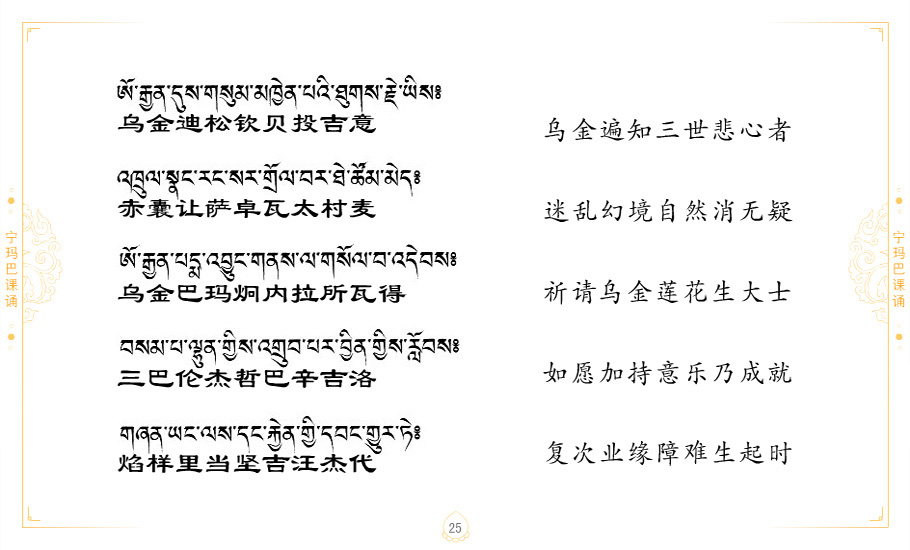 ཨོ་རྒྱན་དུས་གསུམ་མཁྱེན་པའི་ཐུགས་རྗེ་ཡིས༔
乌金迪松钦贝投吉意
乌金遍知三世悲心者
འཁྲུལ་སྣང་རང་སར་གྲོལ་བར་ཐེ་ཚོམ་མེད༔
赤囊让萨卓瓦太村麦
迷乱幻境自然消无疑
ཨོ་རྒྱན་པདྨ་འབྱུང་གནས་ལ་གསོལ་བ་འདེབས༔
乌金巴玛炯内拉所瓦得
祈请乌金莲花生大士
བསམ་པ་ལྷུན་གྱིས་འགྲུབ་པར་བྱིན་གྱིས་རློབས༔
三巴伦杰哲巴辛吉洛
如愿加持意乐乃成就
གཞན་ཡང་ལས་དང་རྐྱེན་གྱི་དབང་གྱུར་ཏེ༔
焰样里当坚吉汪杰代
复次业缘障难生起时
宁玛巴课诵
宁玛巴课诵
25